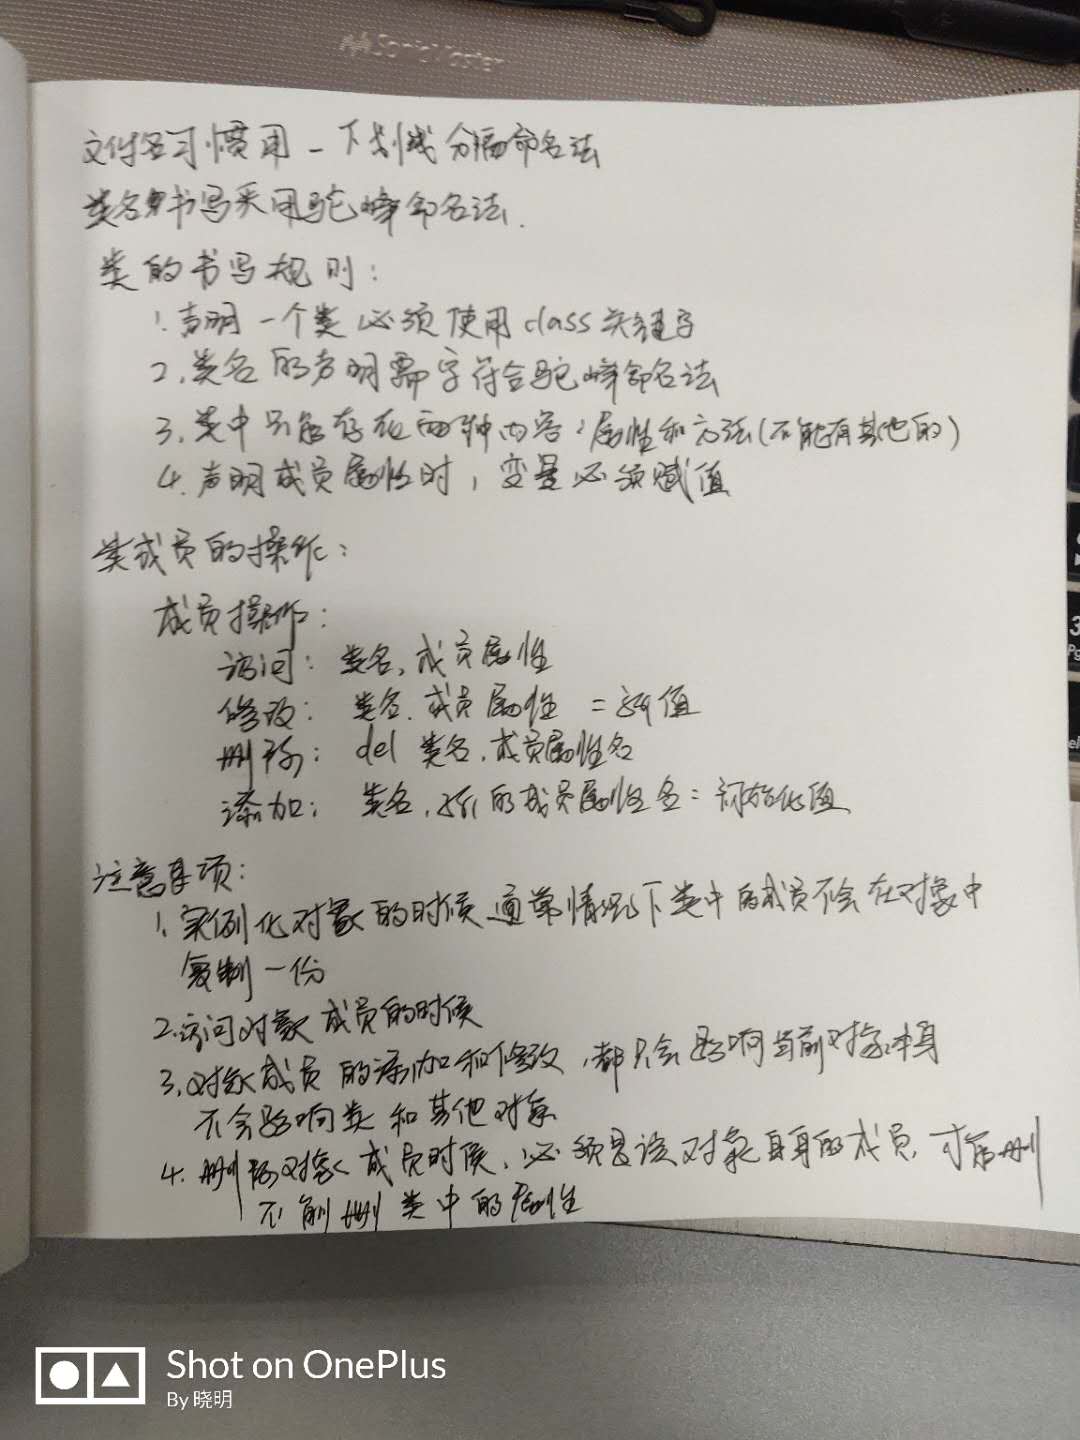 SonicMaster
文件名习惯用 _ 下划线分隔命名法
类名书写采用驼峰命名法.
类的书写规则:
1. 声明一个类必须使用class关键字
2. 类名的声明需字符合驼峰命名法
3. 类中只能存在两种内容:属性和方法(不能有其他的)
4. 声明成员属性时,变量必须赋值
类成员的操作:
成员操作:
访问: 类名.成员属性
修改: 类名.成员属性 = 新值
删除: del 类名.成员属性名
添加: 类名.新的成员属性名=初始化值
注意事项:
1. 实例化对象的时候通常情况下类中的成员不会在对象中
复制一份
2.访问对象成员的时候
3.对象成员的添加和修改,都只会影响当前对象本身
不会影响类和其他对象
4. 删除对象成员时候,必须是该对象自身的成员,才能删
不能删类中的属性
Shot on OnePlus
By 晓明